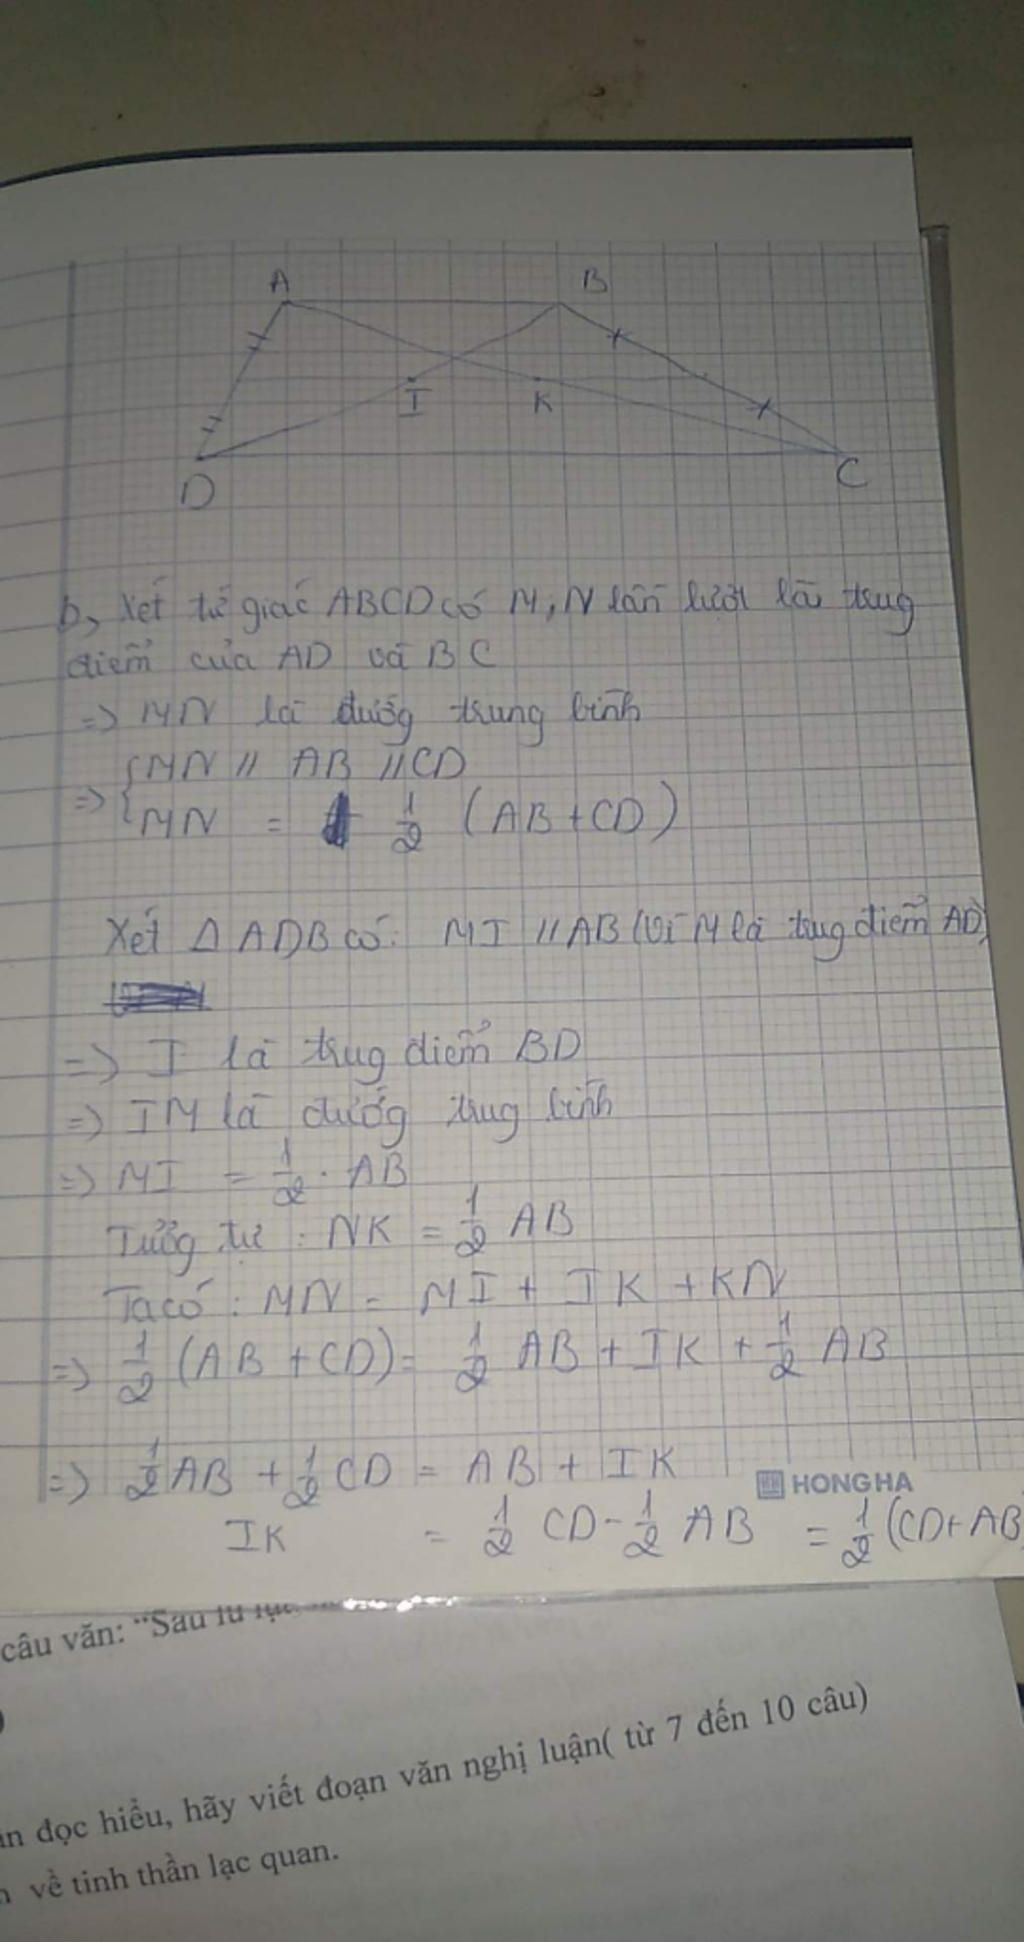 A B
I K
D C
b, Xét tứ giác ABCD có M, N lần lượt là trug
điểm của AD và BC
=> MN là đườg trung bình
=> { MN // AB // CD
MN = 1/2 (AB + CD)
Xét Δ ADB có: MI // AB (vì M là trug điểm AD)
=> I là trug điểm BD
=> IM là đườg trug bình
=> MI = 1/2 . AB
Tươg tự : NK = 1/2 AB
Ta có : MN = MI + IK + KN
=> 1/2 (AB + CD) = 1/2 AB + IK + 1/2 AB
=> 1/2 AB + 1/2 CD = AB + IK
HONG HA
IK = 1/2 CD - 1/2 AB = 1/2 (CD + AB)
câu văn: "Sau
n đọc hiểu, hãy viết đoạn văn nghị luận( từ 7 đến 10 câu)
về tinh thần lạc quan.